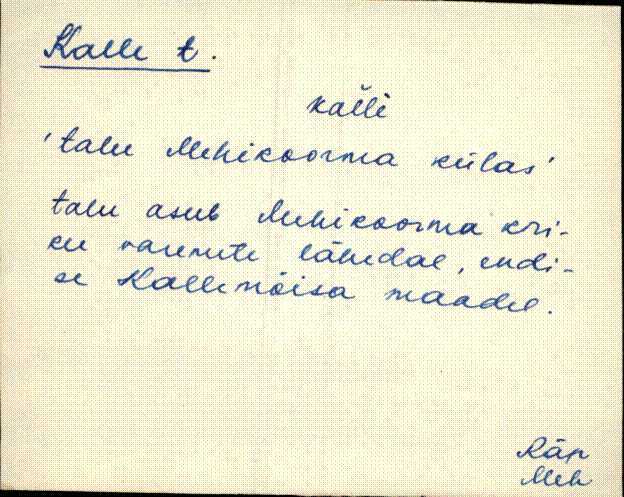 Kalle t.
kalli
'talu Mehikoorma külas'
talu asub Mehikoorma kri-
ku varemete lähedal, endi-
se Kallemõisa maadel.
Räp
Meh